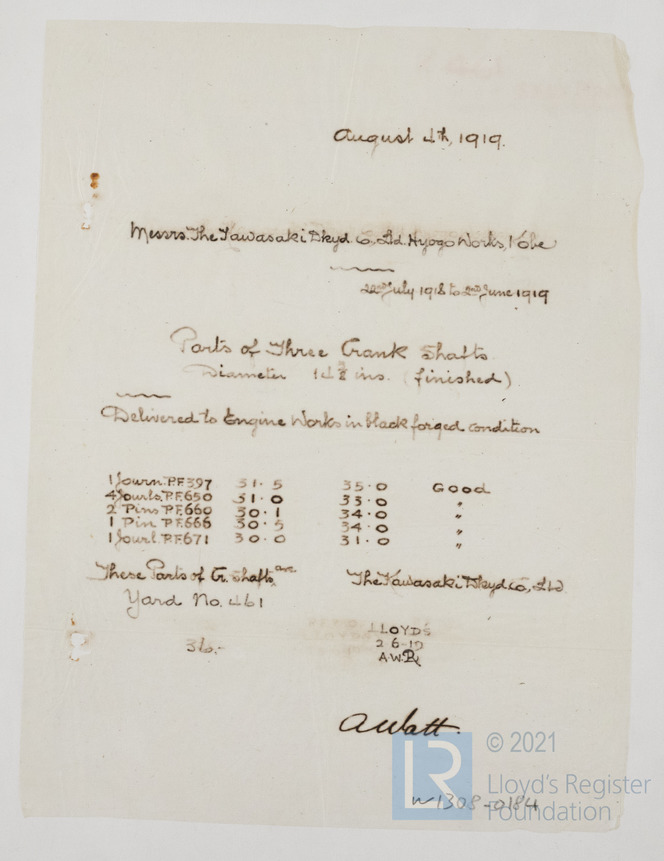 August 4th, 1919.
Messrs. The Kawasaki Dkyd. Co. Ltd. Hyogo Works, Kobe
22nd July 1918 to 2nd June 1919
Parts of Three Crank Shafts
Diameter 14 ins. (finished)
Delivered to Engine Works in black forged condition
1 Journ. P.F.397 31.5 35.0 Good
4 Jourls. P.F.650 31.0 33.0 "
2 Pins P.F.660 30.1 34.0 "
1 Pin P.F.666 30.5 34.0 "
1 Jourl P.F.671 30.0 31.0 "
These Parts of Cr. Shafts are The Kawasaki Dkyd Co., Ltd
Yard No. 461
LLOYD'S
36:- 2 6-19
A.W.R
AWatt.
LR
© 2021
Lloyd's Register
Foundation
W1308-0184